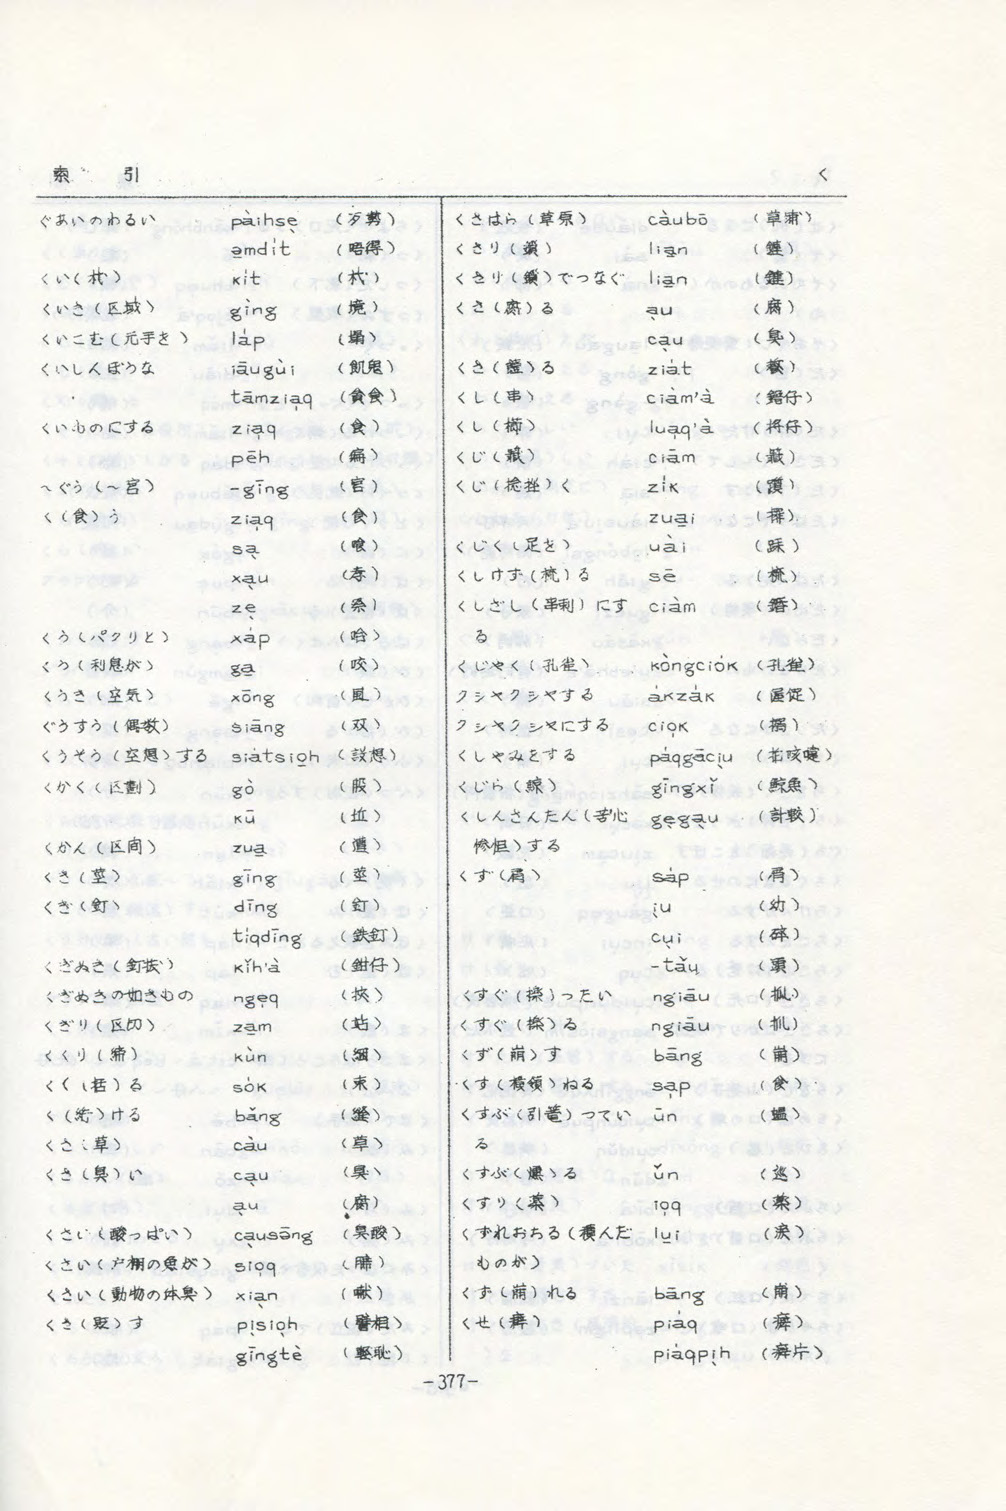 索 引 く
ぐあいのわるい pàihsẹ (歹勢)
ạmdi̍t (暗得)
くい(杙) ki̍t (杙)
くいき(区域) gìng (境)
くいこむ(元手を) la̍p (塌)
くいしんぼうな iāugùi (飢鬼)
tāmziạq (貪食)
くいものにする ziạq (食)
pēh
〜ぐう(〜宮) -gīng (宮)
く(食)う ziạq (食)
sạ
xạu (孝)
zẹ (祭)
くう(パクリと) xa̍p (哈)
くう(利息が) gạ (咬)
くうき(空気) xōng (風)
ぐうすう(偶数) siāng (双)
くうそう(空想)する siàtsiọh (設想)
くかく(区劃) gò (股)
kū (坵)
くかん(区間) zuạ
くき(茎) gīng (茎)
くぎ(釘) dīng (釘)
tiqdīng (鉄釘)
くぎぬき(釘抜) kǐh'à (鉗仔)
くぎぬきの如きもの ngẹq (挾)
くぎり(区切) zạm (站)
くくり(綑) kùn (綑)
くく(括)る sòk (束)
く(絎)ける bǎng (縫)
くさ(草) càu (草)
くさ(臭)い cạu (臭)
ạu (腐)
くさい(酸っぱい) cạusēng (臭酸)
くさい(戸棚の魚が) siọq
くさい(動物の体臭) xiạn
くさ(貶)す pịsiọh (譬相)
gīngtè
くさはら(草原) càubō (草埔)
くさり(鎖) liạn (鏈)
くさり(鎖)でつなぐ liạn (鏈)
くさ(腐)る ạu (腐)
cạu (臭)
くさ(饐)る ziát
くし(串) ciàm'à
くし(櫛) luạq'à (捋仔)
くじ(籤) ciām (籤)
くじ(捻挫)く zi̍k
zuại
くじく(足を) uài
くしけず(梳)る sē (梳)
くしざし(串刺)にす ciàm
る
くじやく(孔雀) kòngciók (孔雀)
クシヤクシヤする ákzák (齷齪)
クシヤクシヤにする ciọk
くしやみをする páqgāciụ (打咳嚏)
くじら(鯨) gīngxǐ (鯨魚)
くしんさんたん(苦心 gẹgạu (計較)
惨怛)する
くず(屑) sáp (屑)
ịu (幼)
cụi (碎)
tǎu (頭)
くすぐ(擽)ったい ngiāu
くすぐ(擽)る ngiāu
くず(崩)す bāng (崩)
くす(横領)ねる sạp
くすぶ(引篭)つてい ūn
る
くすぶ(燻)る ǔn
くすり(薬) iọq (薬)
ずれおちる(積んだ lụi
ものが)
くず(崩)れる bāng (崩)
くせ(癖) piáq (癖)
piáqpịh (癖片)
-377-